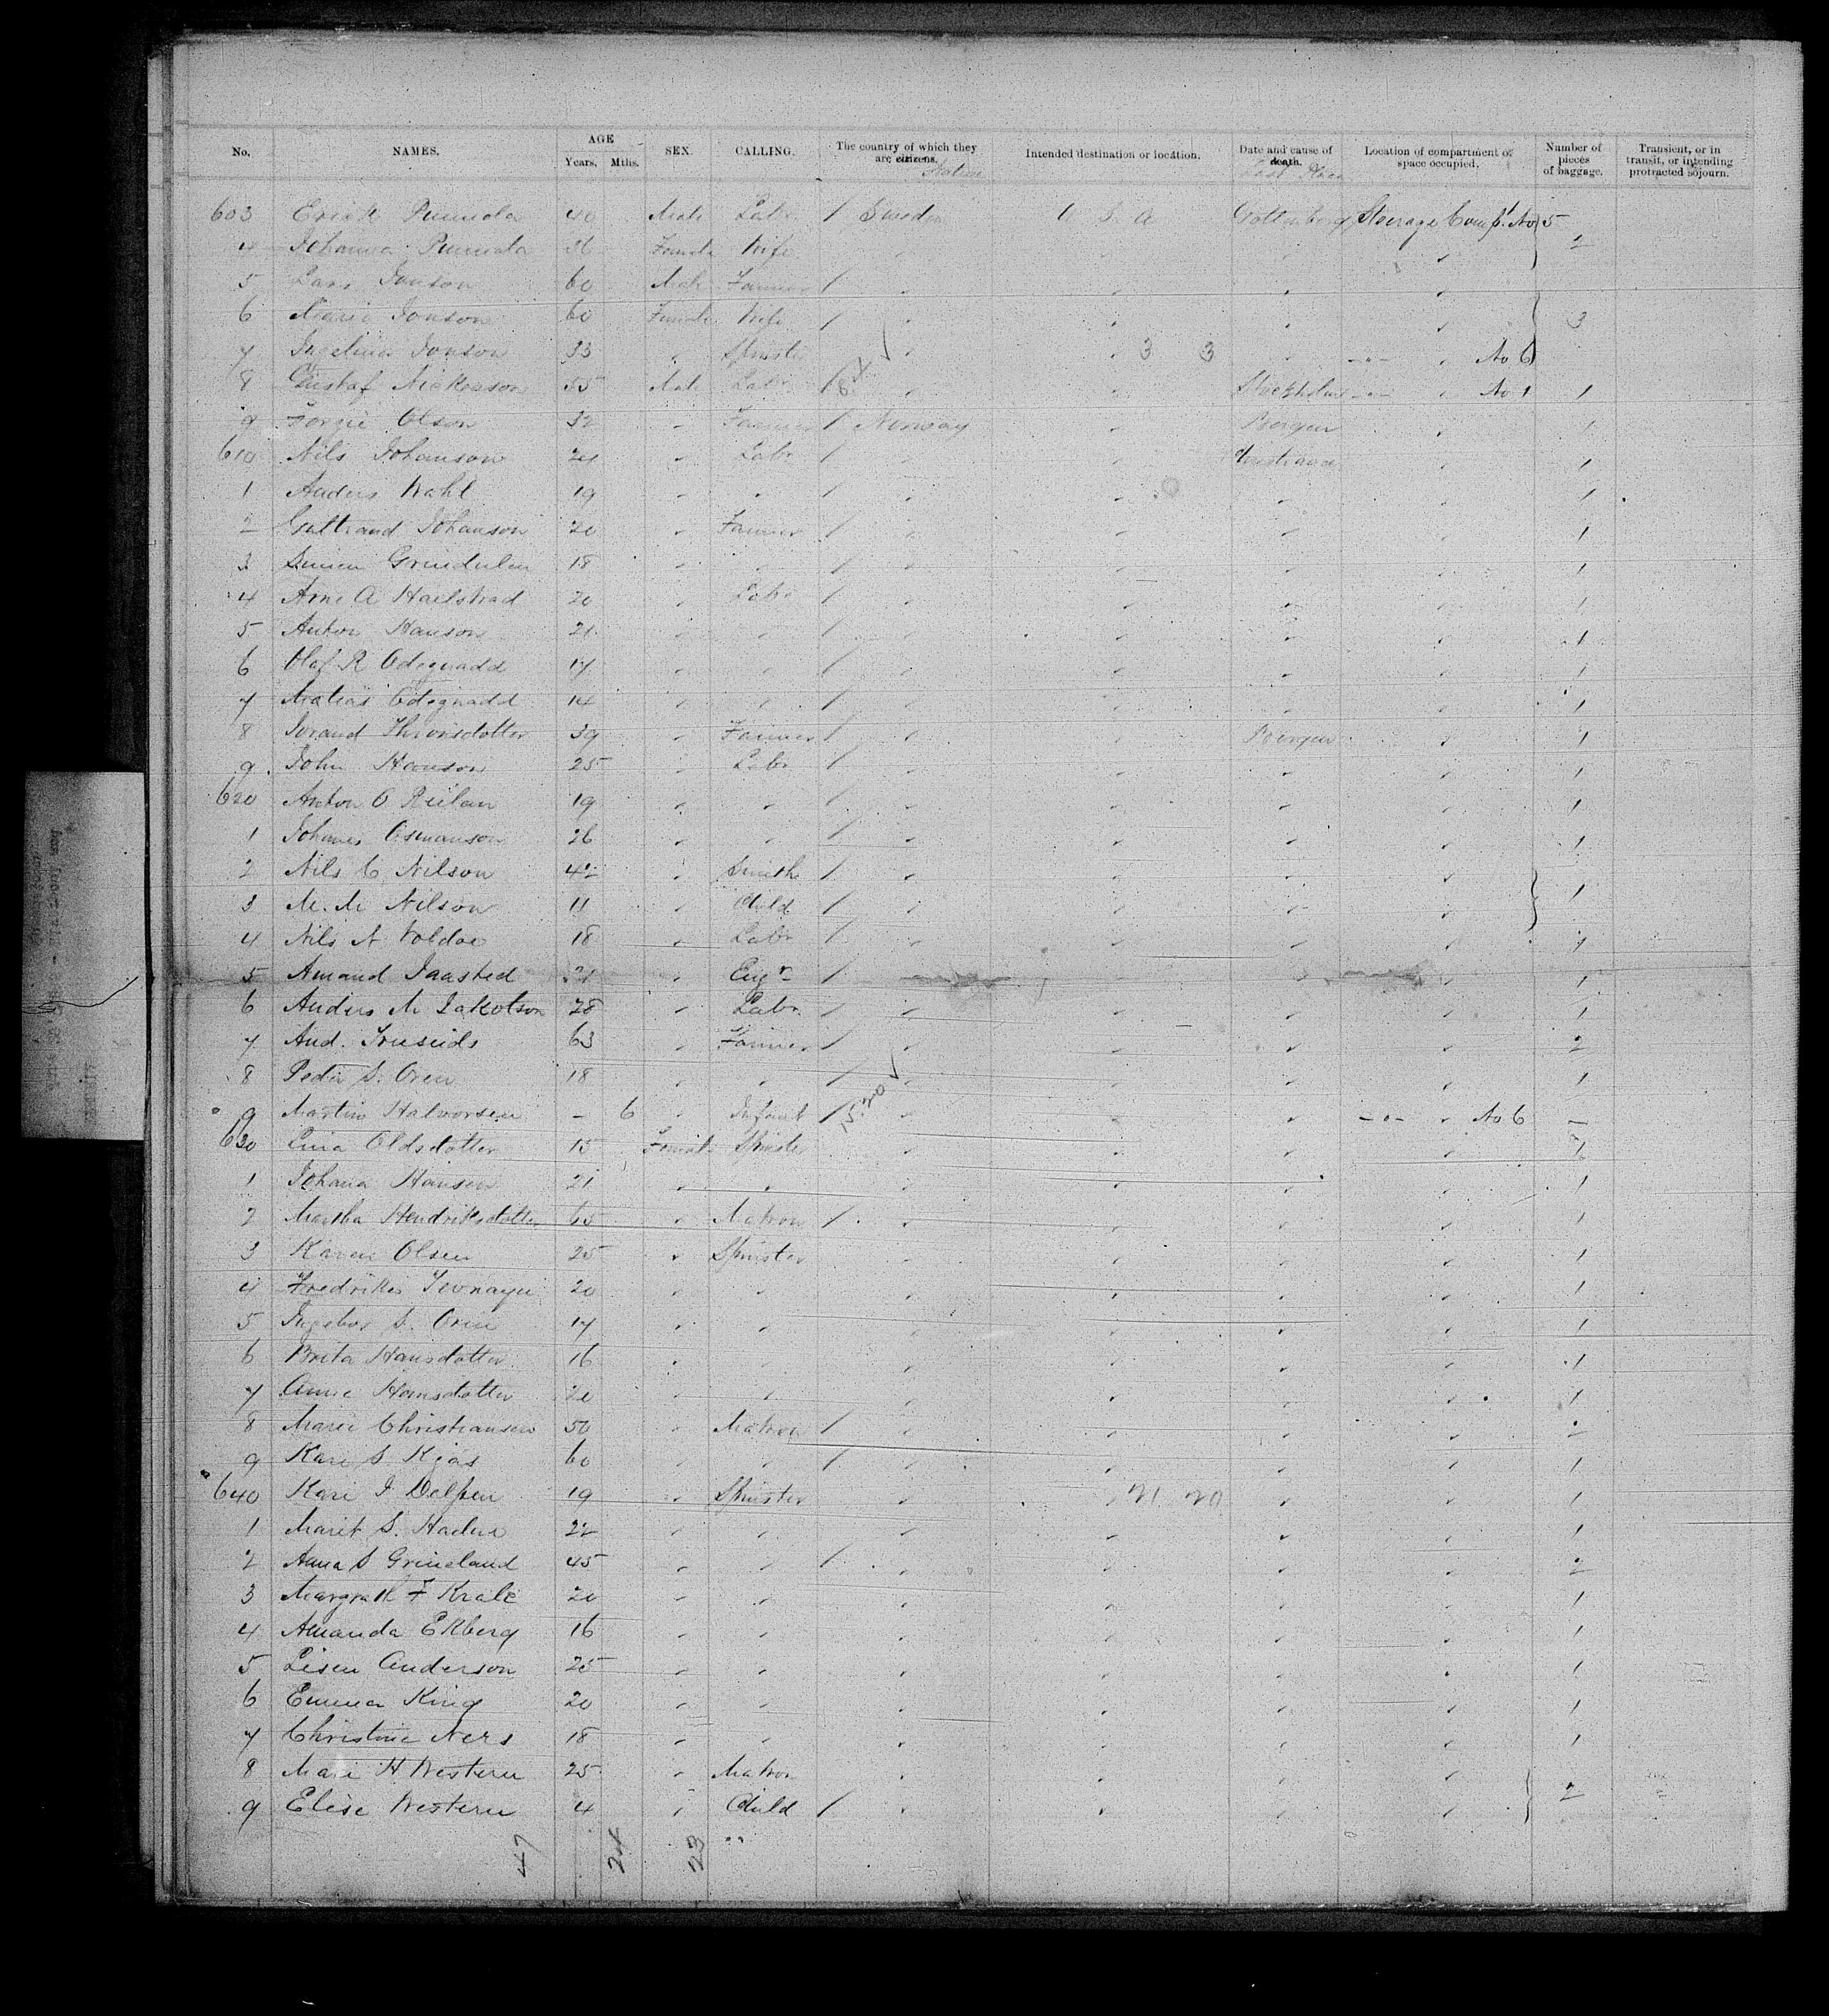 No. NAMES. AGE Years. Mths. SEX. CALLING. The country of which they are citizens. Native Intended destination or location. Date and cause of death. Last Place Location of compartment or space occupied. Number of pieces of baggage. Transient, or in transit, or intending protracted sojourn.
603 Erick Punnola 40 Male Labr / Sweden U S A Gottenborg Steerage Comp't No 5
4 Johanna Punnola 26 Female Wife " " " " 2
5 Lars Jonson 60 Male Farmer / " " " "
6 Maria Jonson 60 Female Wife / " " " " 3
7 Ingelina Jonson 33 " Spinster " " 3 3 " -"- " No 6
8 Gustaf Nickerson 55 Male Labr / " " Stockholm -"- " No 1 1
9 Olson 32 " Farmer / Norway " Bergen " 1
610 Nils Johanson 24 " Labr / " " " 1
1 Anders Wahl 19 " " / " " " " 1
2 Johanson 20 " Farmer / " " " " 1
3 Grindulen 18 " " / " " " " 1
4 Arne A 20 " Labr / " " " " 1
5 Anton Hanson 21 " " / " " " " 1
6 Olaf R Odegnadd 17 " " / " " " " 1
7 Matias Odegnadd 14 " " / " " " " 1
8 39 " Farmer / " " Bergen " 1
9 John Hanson 25 " Labr / " " " " 1
620 Anton O 19 " " / " " " " 1
1 Johanes Osmanson 26 " " / " " " " 1
2 Nils C Nilson 42 " Smith / " " " "
3 M. M Nilson 11 " Child / " " " " 1
4 Nils N Voldoe 18 " Labr / " " " " 1
5 Amand Jaasted 21 " Engr / " " " " 1
6 Anders M Jakobson 28 " Labr / " " " " 1
7 And. 63 " Farmer / " " " " 2
8 Peder S. Oren 18 " " / " " " " 1
9 Martin Halvorsen - 6 " Infant / " " " -"- " No 6 -
630 Lina Oldsdotter 15 Female Spinster " " " " 1
1 Johana Hansen 21 " " " " " " 1
2 Martha Hendriksdotter 65 " Matron / " " " " 1
3 Karen Olsen 25 " Spinster " " " 1
4 Fredrikes 20 " " " " " " 1
5 Ingebor S. Oren 17 " " " " " 1
6 Brita Hansdotter 16 " " " " " 1
7 Anne Hansdotter 20 " " " " " " 1
8 Marie Christiansen 50 " Matron / " " " " 2
9 Kari S Kjos 60 " " / " " " " 1
640 Kari J Dalpen 19 " Spinster " " 21 20 " " 1
1 Marit S. Hadne 22 " " " " " " 1
2 Anna S Grineland 45 " " / " " " " 2
3 F Krale 20 " " " " " " 1
4 Amanda Ekberg 16 " " " " " " 1
5 Lisen Anderson 25 " " " " " " 1
6 Emma King 20 " " " " " " 1
7 Christine Ners 18 " " " " " " 1
8 Mari H Western 25 " Matron " " " "
9 Elise Western 4 " Child / " " " " 2
47 24 23 "